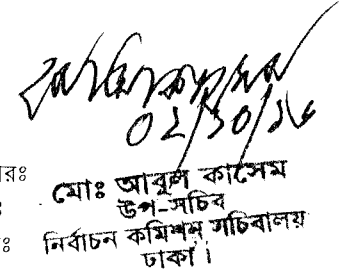 ০২/১০/১৬
রঃ
মোঃ আবুল কাসেম
ঃ
উপ-সচিব
ঃ
নির্বাচন কমিশন সচিবালয়
ঢাকা।